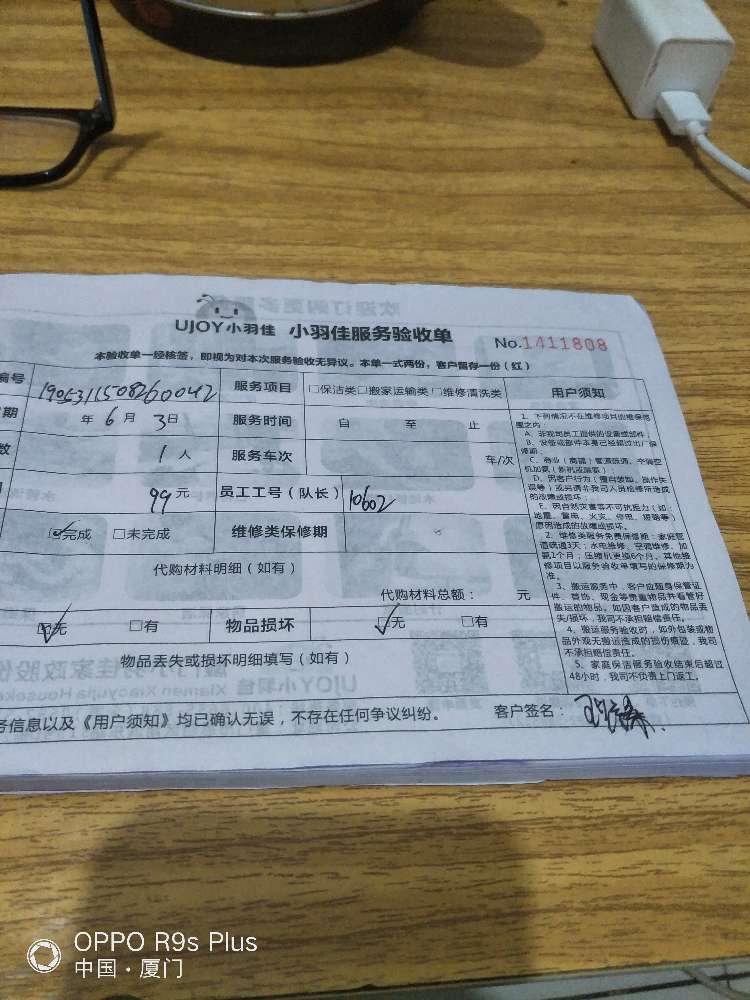 UJOY小羽佳 小羽佳服务验收单 No.1411808
本验收单一经核签，即视为对本次服务验收无异议。本单一式两份，客户留存一份（红）
编号 190531150826004 2 服务项目 □保洁类□搬家运输类□维修清洗类 用户须知
期 年 6 月 3 日 服务时间 自 至 止
数 1 人 服务车次 车/次
99 元 员工工号（队长） 10602
完成 □未完成 维修类保修期
代购材料明细（如有）
代购材料总额： 元
无 □有 物品损坏 无 □有
物品丢失或损坏明细填写（如有）
务信息以及《用户须知》均已确认无误，不存在任何争议纠纷。 客户签名：
1、下列情况不在维修项目的维保范
围之内
A、非我司员工提供的设备或部件
B、设备或部件本身已经超过出厂保
修期
C、商业（商铺）管道疏通、中央空
机加氟（新机或漏氟）
D、因客户行为（擅自拆卸、操作失
误等）或另请非我司人员检修所造成
的故障或损坏
E、因自然灾害等不可抗力（如：
地震、雷电、火灾、停电、短路等）
原因造成的故障或损坏。
2、维修类服务免费保修期：家庭管
道疏通3天；水电维修、空调维修、加
氟1个月；压缩机更换6个月。其他维
修项目以服务验收单填写的保修期为
准。
3、搬运服务中，客户应随身保管证
件、首饰、现金等贵重物品并看管好
搬运的物品，如因客户造成的物品丢
失/损坏，我司不承担赔偿责任。
4、搬运服务验收时，如外包装或物
品外观无搬运造成的损伤痕迹，我司
不承担赔偿责任。
5、家庭保洁服务验收结束后超过
48小时，我司不负责上门返工。
OPPO R9s Plus
中国·厦门